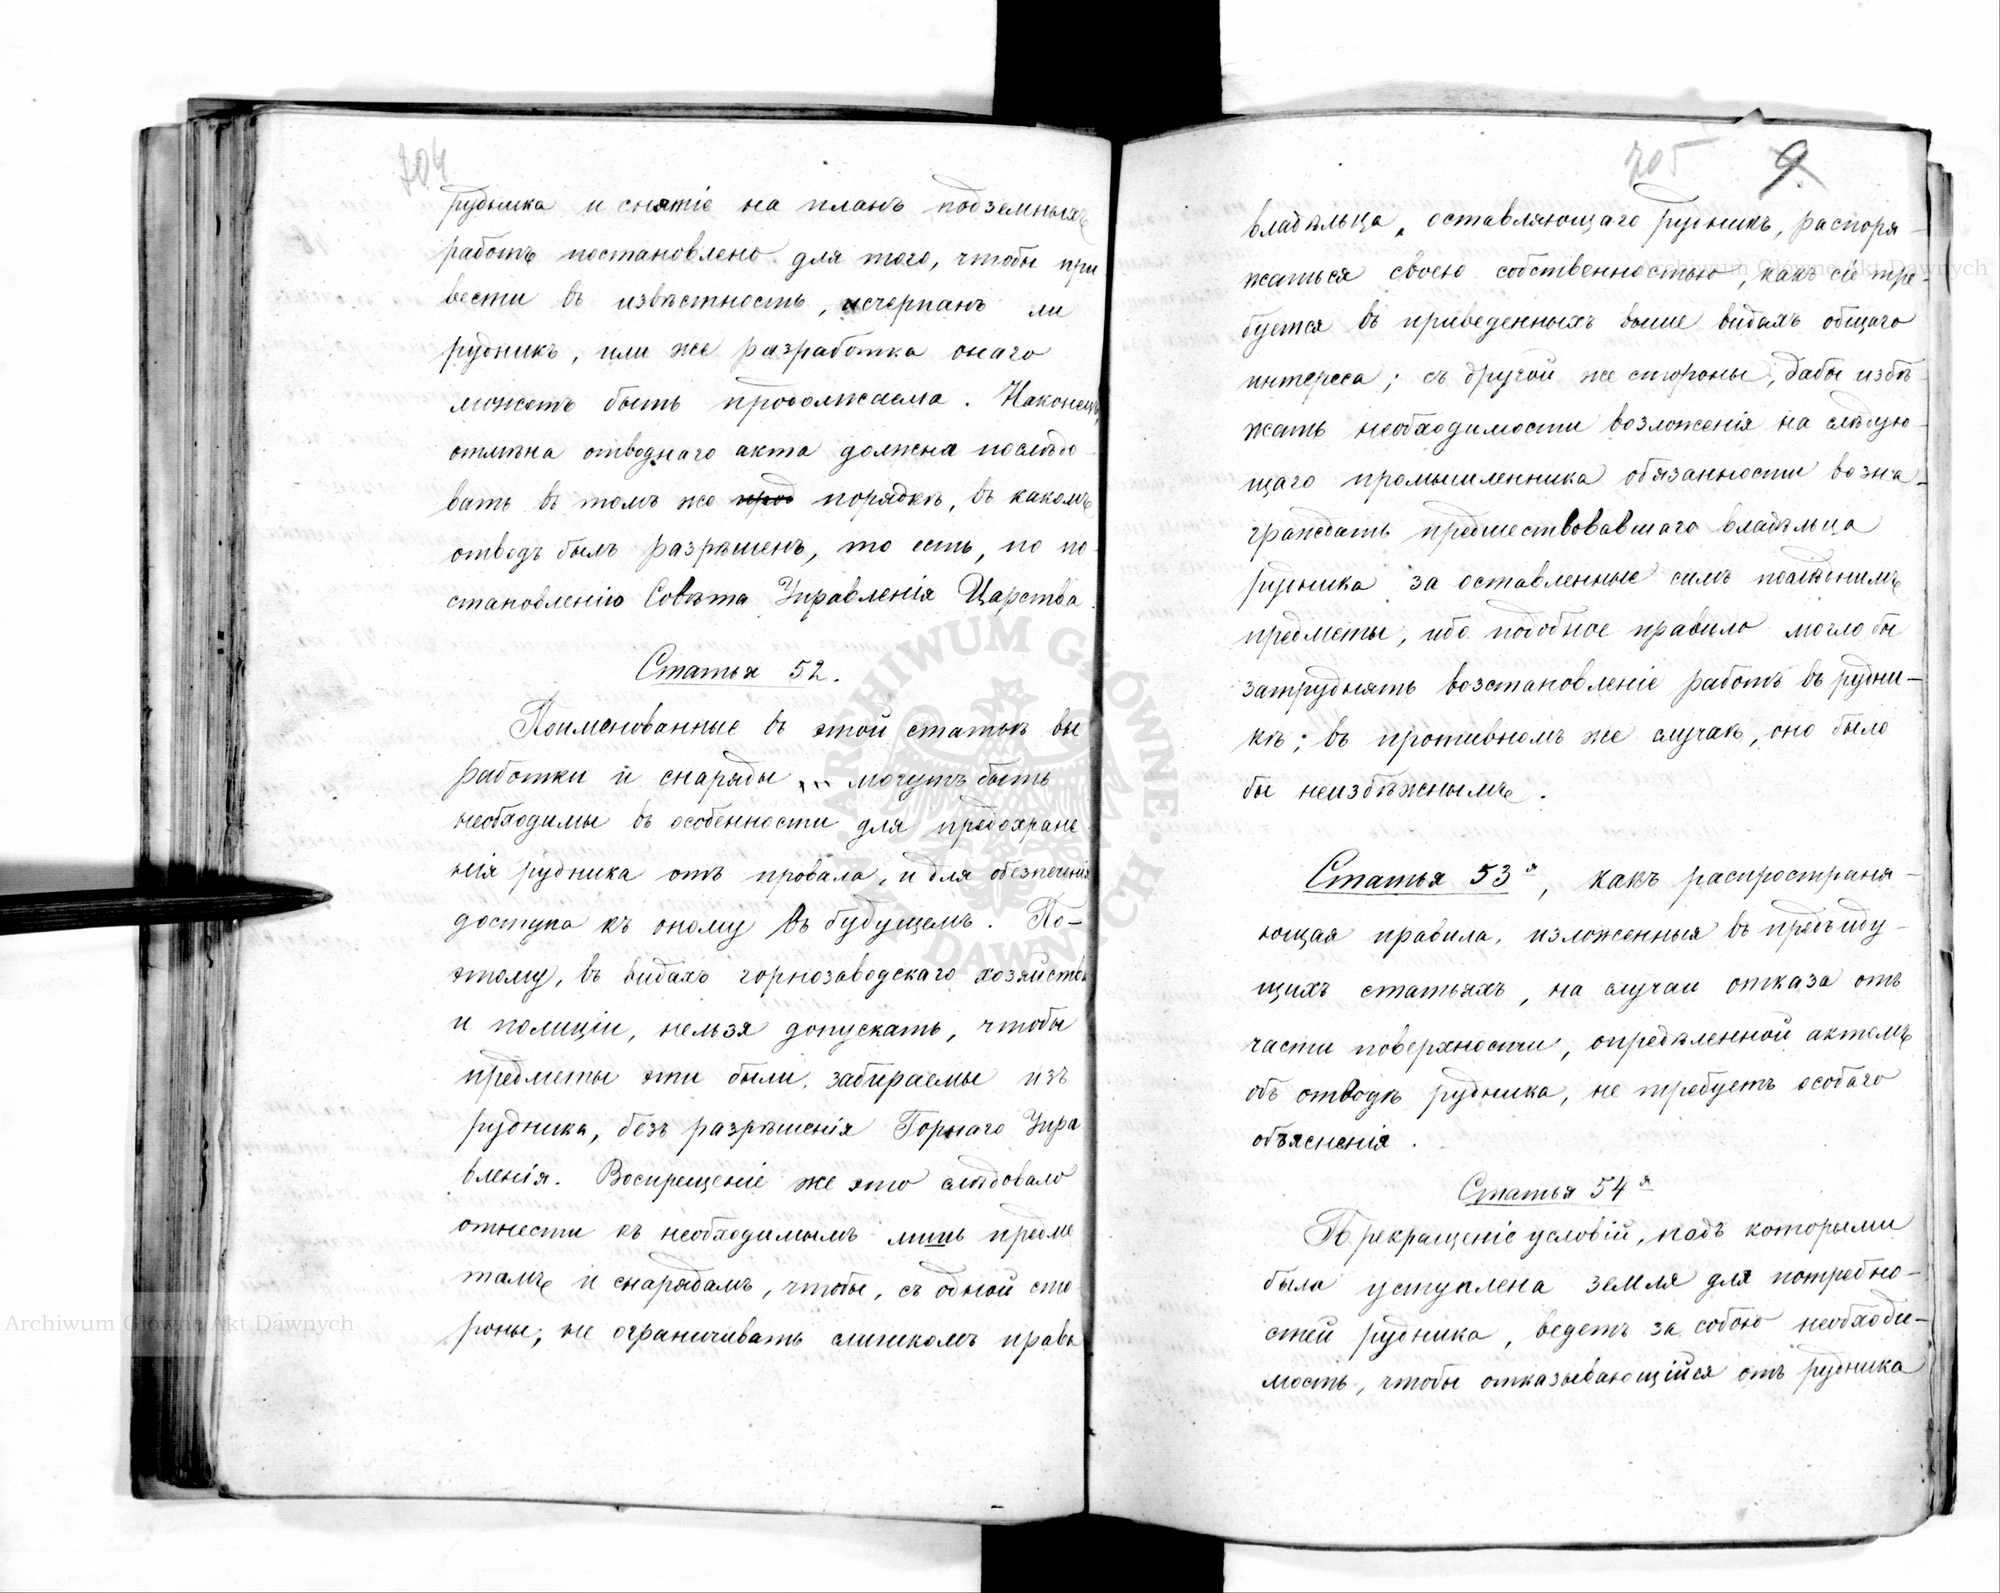 704
рудника и снятіе на планъ подземныхъ
работъ постановлено для того, чтобы при
вести въ извѣстность, исчерпанъ ли
рудникъ, или же разработка онаго
можетъ быть продолжаема. Наконецъ,
отмѣна отводнаго акта должна послѣдо-
вать въ томъ же прод порядкѣ, въ какомъ
отводъ былъ разрѣшенъ, то есть, по по-
становленію Совѣта Управленія Царства.
Статья 52.
Поименованные въ этой статьѣ вы
работки и снаряды могутъ быть
необходимы въ особенности для предохране
нія рудника отъ провала, и для обезпеченія
доступа къ оному въ будущемъ. По-
этому, въ видахъ горнозаводскаго хозяйства
и полиціи, нельзя допускать, чтобы
предметы эти были забираемы изъ
рудника, безъ разрѣшенія Горнаго Упра
вленія. Воспрещеніе же это слѣдовало
отнести къ необходимымъ лишь предме
тамъ и снарядамъ, чтобы, съ одной сто-
роны, не ограничивать слишкомъ права
705 9.
владѣльца, оставляющаго рудникъ, распоря-
жаться своею собственностью, какъ сіе тре-
буется въ приведенныхъ выше видахъ общаго
интереса; съ другой же стороны, дабы избѣ-
жать необходимости возложенія на слѣдую-
щаго промышленника обязанности возна-
граждать предшествовавшаго владѣльца
рудника за оставленные симъ послѣднимъ
предметы, ибо подобное правило могло бы
затруднять возстановленіе работъ въ рудни-
кѣ; въ противномъ же случаѣ, оно было
бы неизбѣжнымъ.
Статья 53я, какъ распространя-
ющая правила, изложенныя въ предъиду-
щихъ статьяхъ, на случаи отказа отъ
части поверхности, опредѣленной актомъ
объ отводѣ рудника, не требуетъ особаго
объясненія.
Статья 54я
Прекращеніе условій, подъ которыми
была уступлена земля для потребно-
стей рудника, ведетъ за собою необходи-
мость, чтобы отказывающійся отъ рудника
Archiwum Główne Akt Dawnych
Archiwum Główne Akt Dawnych
ARCHIWUM GŁÓWNE AKT DAWNYCH